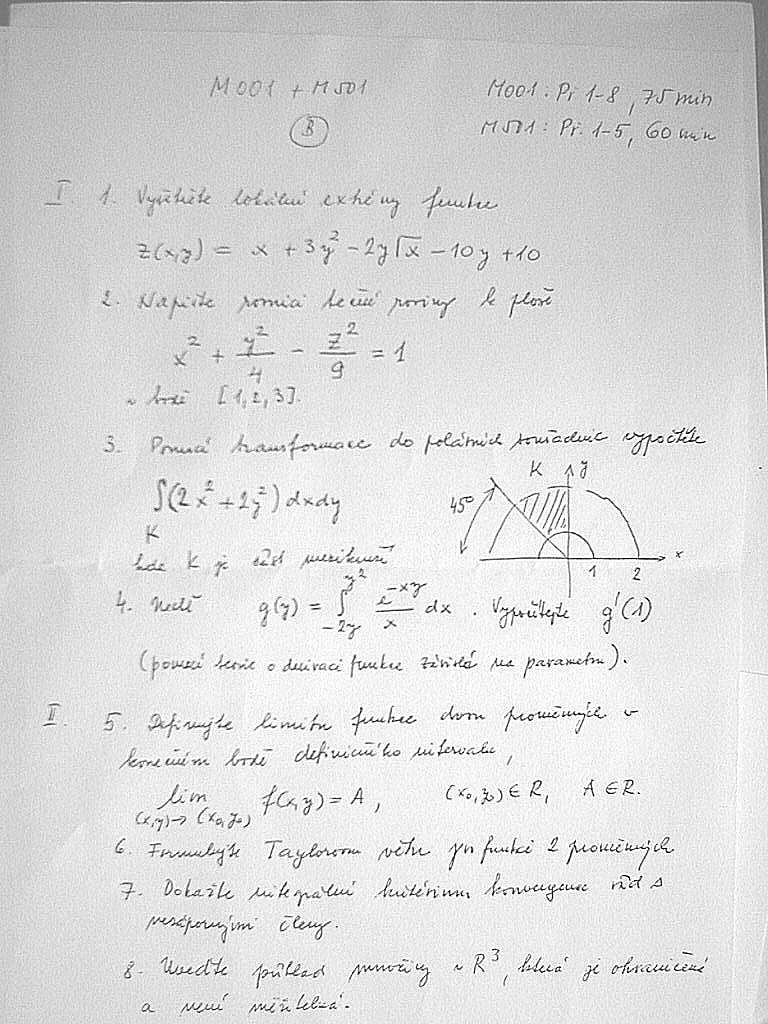 M001 + M501
M001: Př 1-8, 75 min
B
M501: Př. 1-5, 60 min
I. 1. Vyšetřete lokální extrémy funkce
z(x,y) = x + 3y² - 2y√x - 10y + 10
2. Napište rovnici tečné roviny k ploše
x² + y²/4 - z²/9 = 1
v bodě [1,2,3].
3. Pomocí transformace do polárních souřadnic vypočtěte
∫(2x² + 2y²) dxdy
K
kde K je část mezikruží
K y 45° x 1 2
4. Nechť g(y) = ∫_{-2y}^{y²} e^{-xy}/x dx. Vypočítejte g'(1)
(pomocí teorie o derivaci funkce závislé na parametru).
II. 5. Definujte limitu funkce dvou proměnných v
konečném bodě definičního intervalu,
lim f(x,y) = A, (x₀,y₀) ∈ R, A ∈ R.
(x,y)→(x₀,y₀)
6. Formulujte Taylorovu větu pro funkci 2 proměnných
7. Dokažte integrální kritérium konvergence řad s
nezápornými členy.
8. Uveďte příklad množiny v R³, která je ohraničená
a není měřitelná.